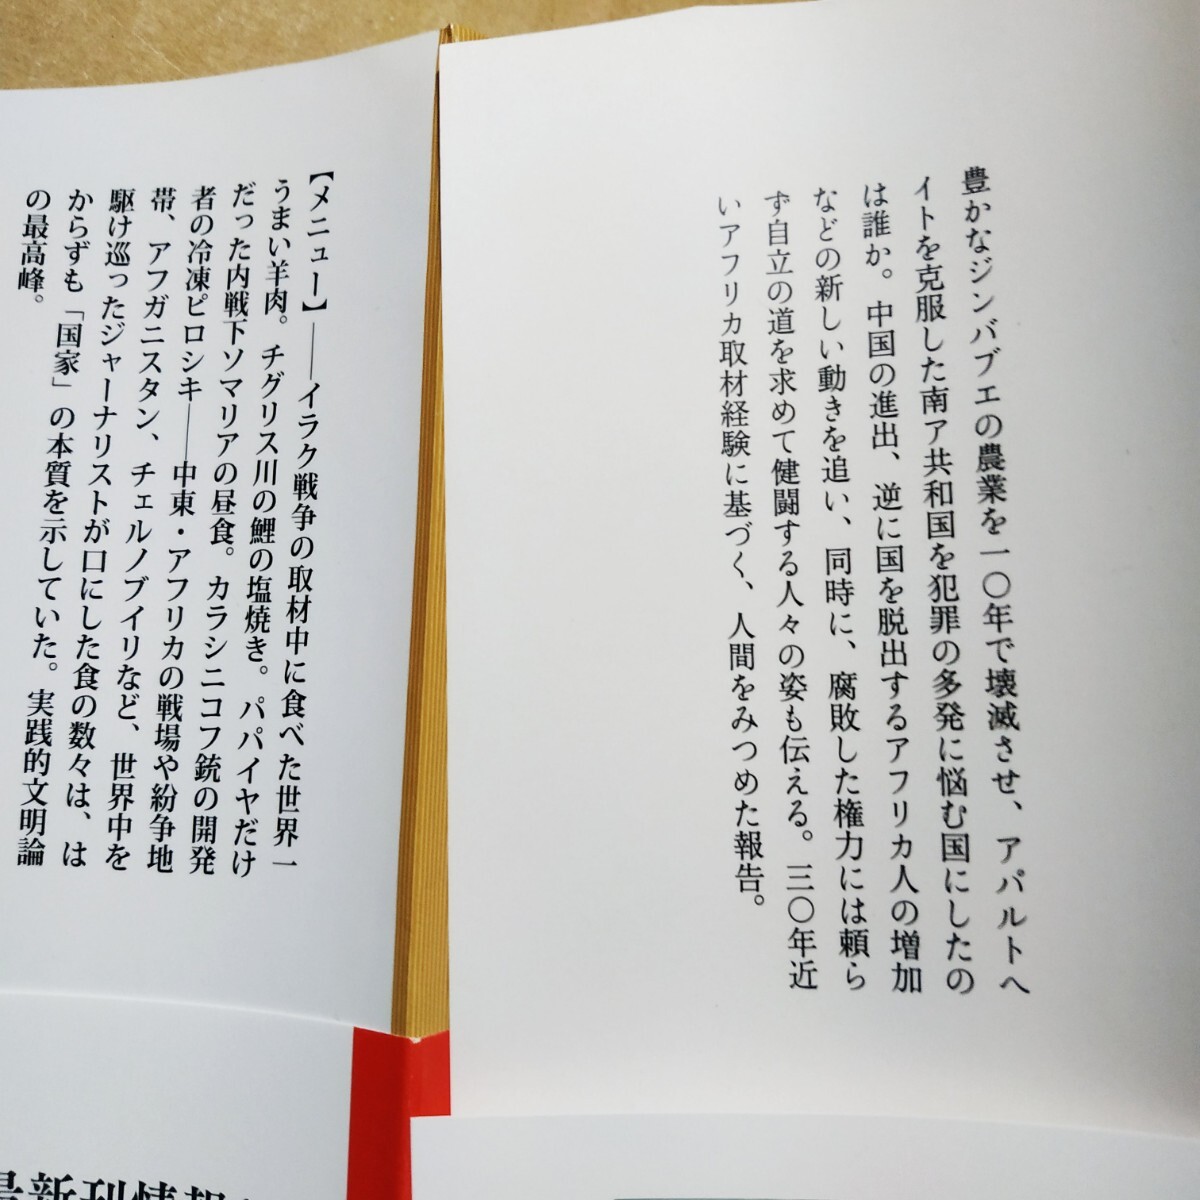 豊かなジンバブエの農業を一〇年で壊滅させ、アパルトヘ
イトを克服した南ア共和国を犯罪の多発に悩む国にしたの
は誰か。中国の進出、逆に国を脱出するアフリカ人の増加
などの新しい動きを追い、同時に、腐敗した権力には頼ら
ず自立の道を求めて健闘する人々の姿も伝える。三〇年近
いアフリカ取材経験に基づく、人間をみつめた報告。
【メニュー】――イラク戦争の取材中に食べた世界一
うまい羊肉。チグリス川の鯉の塩焼き。パパイヤだけ
だった内戦下ソマリアの昼食。カラシニコフ銃の開発
者の冷凍ピロシキ――中東・アフリカの戦場や紛争地
帯、アフガニスタン、チェルノブイリなど、世界中を
駆け巡ったジャーナリストが口にした食の数々は、は
からずも「国家」の本質を示していた。実践的文明論
の最高峰。
最新刊情報